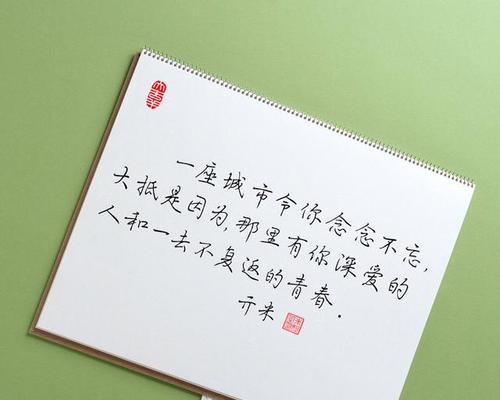 一座城市令你念念不忘,
大抵是因为,那里有你深爱的
人和一去不复返的青春.
亓米